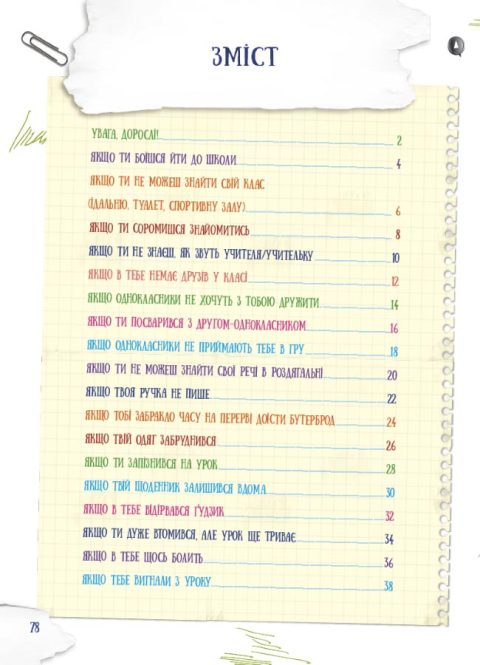 ЗМІСТ
УВАГА, ДОРОСЛІ! 2
ЯКЩО ТИ БОЇШСЯ ЙТИ ДО ШКОЛИ 4
ЯКЩО ТИ НЕ МОЖЕШ ЗНАЙТИ СВІЙ КЛАС
(ЇДАЛЬНЮ, ТУАЛЕТ, СПОРТИВНУ ЗАЛУ) 6
ЯКЩО ТИ СОРОМИШСЯ ЗНАЙОМИТИСЬ 8
ЯКЩО ТИ НЕ ЗНАЄШ, ЯК ЗВУТЬ УЧИТЕЛЯ/УЧИТЕЛЬКУ 10
ЯКЩО В ТЕБЕ НЕМАЄ ДРУЗІВ У КЛАСІ 12
ЯКЩО ОДНОКЛАСНИКИ НЕ ХОЧУТЬ З ТОБОЮ ДРУЖИТИ 14
ЯКЩО ТИ ПОСВАРИВСЯ З ДРУГОМ-ОДНОКЛАСНИКОМ 16
ЯКЩО ОДНОКЛАСНИКИ НЕ ПРИЙМАЮТЬ ТЕБЕ В ГРУ 18
ЯКЩО ТИ НЕ МОЖЕШ ЗНАЙТИ СВОЇ РЕЧІ В РОЗДЯГАЛЬНІ 20
ЯКЩО ТВОЯ РУЧКА НЕ ПИШЕ 22
ЯКЩО ТОБІ ЗАБРАКЛО ЧАСУ НА ПЕРЕРВІ ДОЇСТИ БУТЕРБРОД 24
ЯКЩО ТВІЙ ОДЯГ ЗАБРУДНИВСЯ 26
ЯКЩО ТИ ЗАПІЗНИВСЯ НА УРОК 28
ЯКЩО ТВІЙ ЩОДЕННИК ЗАЛИШИВСЯ ВДОМА 30
ЯКЩО В ТЕБЕ ВІДІРВАВСЯ ҐУДЗИК 32
ЯКЩО ТИ ДУЖЕ ВТОМИВСЯ, АЛЕ УРОК ЩЕ ТРИВАЄ 34
ЯКЩО В ТЕБЕ ЩОСЬ БОЛИТЬ 36
ЯКЩО ТЕБЕ ВИГНАЛИ З УРОКУ 38
78